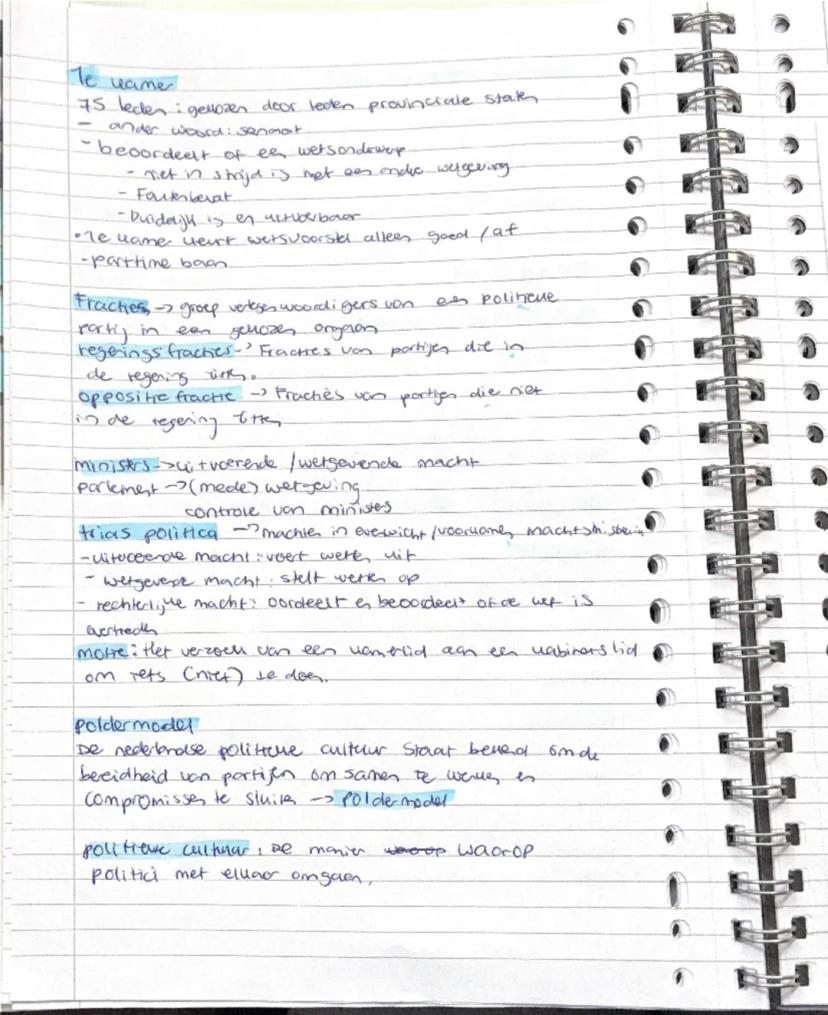 1e kamer
75 leden : gekozen door leden provinciale staten
- ander woord: senaat
- beoordeelt of een wetsonderwerp
- niet in strijd is met een andre wetgeving
- Foutenbevat
- Duidelijk is en uitvoerbaar
• 1e kamer keurt wetsvoorstel alleen goed / af
- parttime baan
Fracties -> groep vertegenwoordigers van een politieke
partij in een gekozen orgaan
regeringsfracties -> Fracties van partijen die in
de regering zitten.
oppositie fractie -> Fracties van partijen die niet
in de regering zitten
ministers -> uitvoerende / wetgevende macht
parlement -> (mede) wetgeving
controle van ministers
trias politica -> machten in evenwicht / voorkomen machtsmisbruik
- uitvoerende macht : voert wetten uit
- wetgevende macht : stelt wetten op
- rechterlijke macht : oordeelt en beoordeelt of de wet is
overtreden
motie : Het verzoek van een kamerlid aan een kabinetslid
om iets (niet) te doen.
poldermodel
De nederlandse politieke cultuur staat bekend om de
bereidheid van partijen om samen te werken en
compromissen te sluiten -> poldermodel
politieke cultuur : De manier waarop
politici met elkaar omgaan.